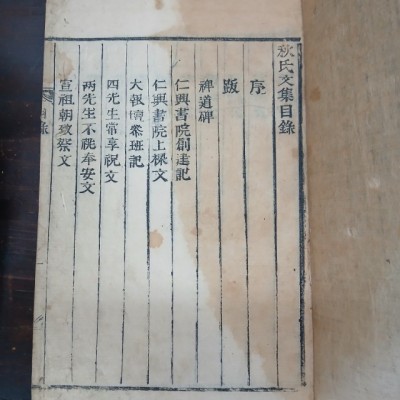 秋氏文集目錄
序
跋
神道碑
仁興書院創建記
仁興書院上樑文
大報壇參班記
四先生常享祝文
兩先生不祧奉安文
宣祖朝致祭文
目錄